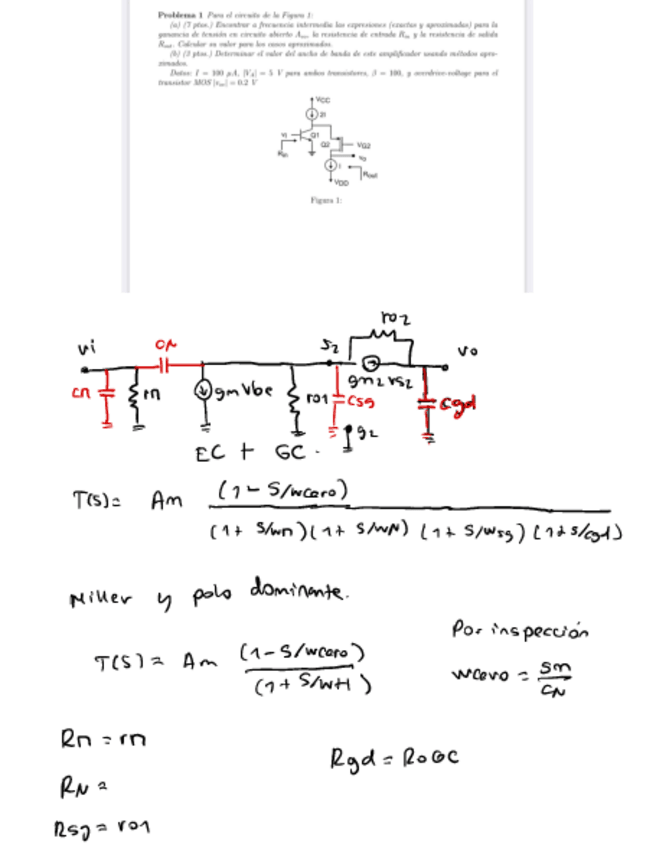 Problema 1 Para el circuito de la Figura 1:
(a) (7 ptos.) Encontrar a frecuencia intermedia las expresiones (exactas y aproximadas) para la
ganancia de tensión en circuito abierto Avo, la resistencia de entrada Rin y la resistencia de salida
Rout. Calcular su valor para los casos aproximados.
(b) (3 ptos.) Determinar el valor del ancho de banda de este amplificador usando métodos apro-
ximados.
Datos: I = 100 μA, |VA| = 5 V para ambos transistores, β = 100, y overdrive-voltage para el
transistor MOS |vov| = 0.2 V
VCC
2I
vi
Q1
Q2
VG2
Rin
vo
I
Rout
VDD
Figura 1:
ro2
vi
Cμ
s2
vo
gm2 vs2
Cπ
rπ
gmVbe
ro1
Csg
Cgd
g2
EC + GC.
T(s)= Am (1 - S/wcero)
(1 + S/wπ)(1 + S/wμ) (1 + S/wsg) (1 + S/cgd)
Miller y polo dominante.
Por inspección
T(S) = Am (1 - S/wcero)
(1 + S/wH)
wcero = gm
Cμ
Rπ = rπ
Rgd = RoGC
Rμ =
Rsg = ro1